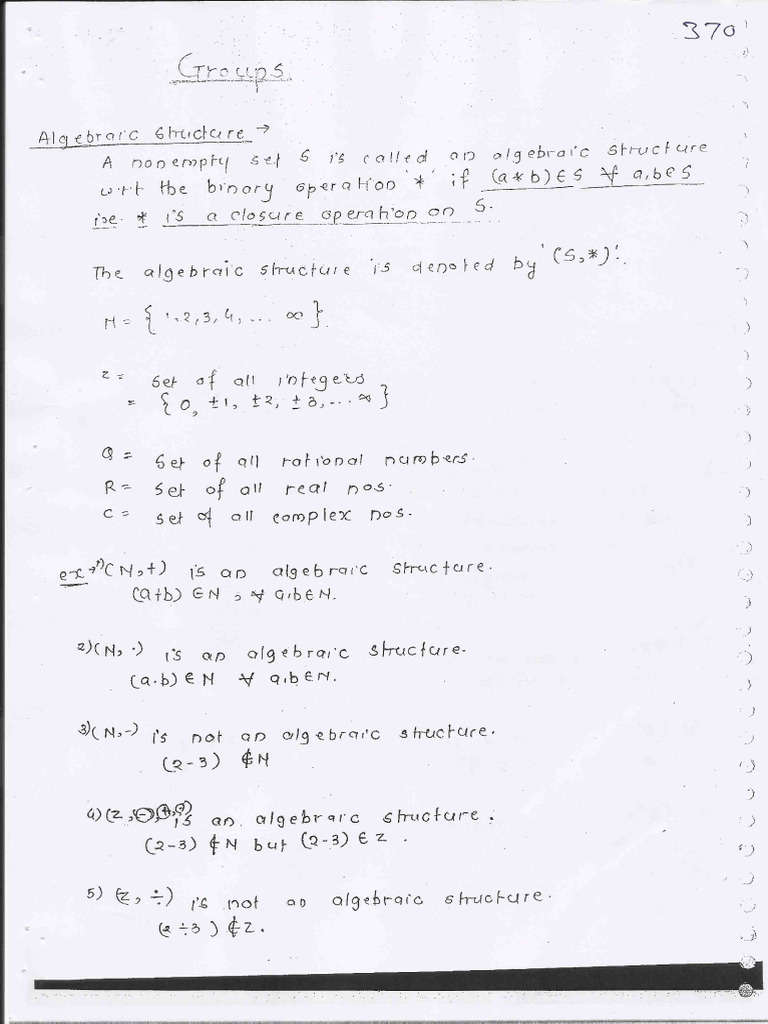 370
Groups
Algebraic Structure →
A nonempty set S is called an algebraic structure
w.r.t the binary operation '*' if (a*b)∈S ∀ a,b∈S
i.e. * is a closure operation on S.
The algebraic structure is denoted by '(S,*)'.
N = { 1,2,3,4,... ∞ }.
Z = set of all integers
= { 0, ±1, ±2, ±3,... ∞ }
Q = set of all rational numbers.
R = set of all real nos.
C = set of all complex nos.
ex → 1) (N,+) is an algebraic structure.
(a+b) ∈ N , ∀ a,b∈N.
2) (N, ·) is an algebraic structure.
(a.b) ∈ N ∀ a,b∈N.
3) (N,-) is not an algebraic structure.
(2-3) ∉ N
4) (Z, is an algebraic structure.
(2-3) ∉ N but (2-3) ∈ Z .
5) (Z, ÷) is not an algebraic structure.
(2÷3) ∉ Z.